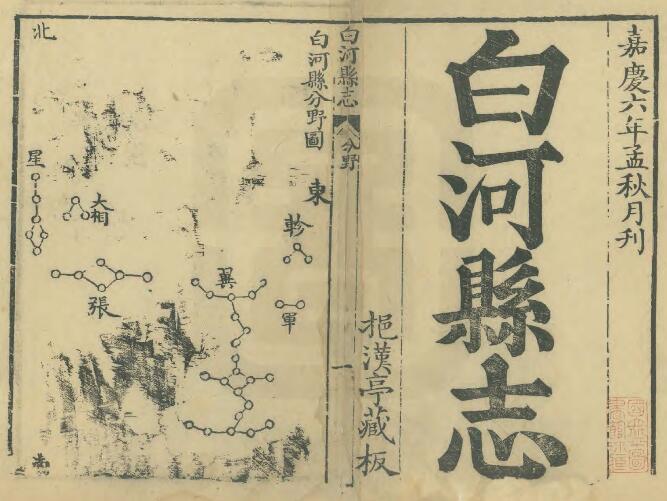 嘉慶六年孟秋月刊
白河縣志
挹漢亭藏板
白河縣志
分野
一
白河縣分野圖
東
軫
軍
翼
北
星
張
南